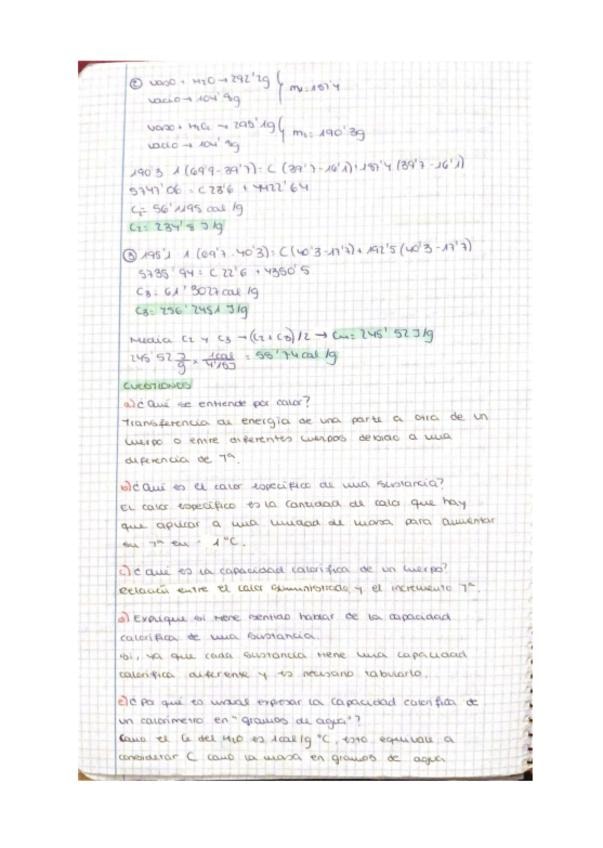 ② vaso + H2O → 292'2g } m1=187'4
vacio → 104'8g
vaso + H2O → 295'1g } m2=190'3g
vacio → 104'8g
190'3 · 1 (69'9-39'7) = C (39'7-16'1) + 187'4 (39'7-16'1)
5747'06 = C 23'6 + 4422'64
C2= 56'1195 cal/g
C2= 234'8 J/g
③ 195'1 · 1 (69'7-40'3) = C(40'3-17'7) + 192'5 (40'3-17'7)
5735'94 = C 22'6 + 4350'5
C3= 61'3027 cal/g
C3= 256'2451 J/g
Media C2 y C3 → (C2+C3)/2 → = 245'52 J/g
245'52 J/g × 1cal/ = 58'74 cal/g
CUESTIONES
a) ¿Qué se entiende por calor?
Transferencia de energía de una parte a otra de un
cuerpo o entre diferentes cuerpos debido a una
diferencia de Tª.
b) ¿Qué es el calor específico de una sustancia?
El calor específico es la cantidad de calor que hay
que aplicar a una unidad de masa para aumentar
su Tª en 1°C.
c) ¿Qué es la capacidad calorífica de un cuerpo?
Relación entre el calor suministrado y el incremento Tª.
d) Explique si tiene sentido hablar de la capacidad
calorífica de una sustancia.
Si, ya que cada sustancia tiene una capacidad
calorífica diferente y es necesario tabularlo.
e) ¿Por qué es usual expresar la capacidad calorífica de
un calorímetro en "gramos de agua"?
Como el Ce del H2O es 1cal/g °C, esto equivale a
considerar C como la masa en gramos de agua